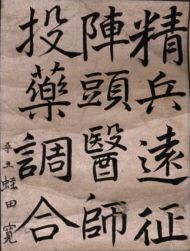 精兵遠征
陣頭醫師
投藥調合
辛丑 蛭田 寛